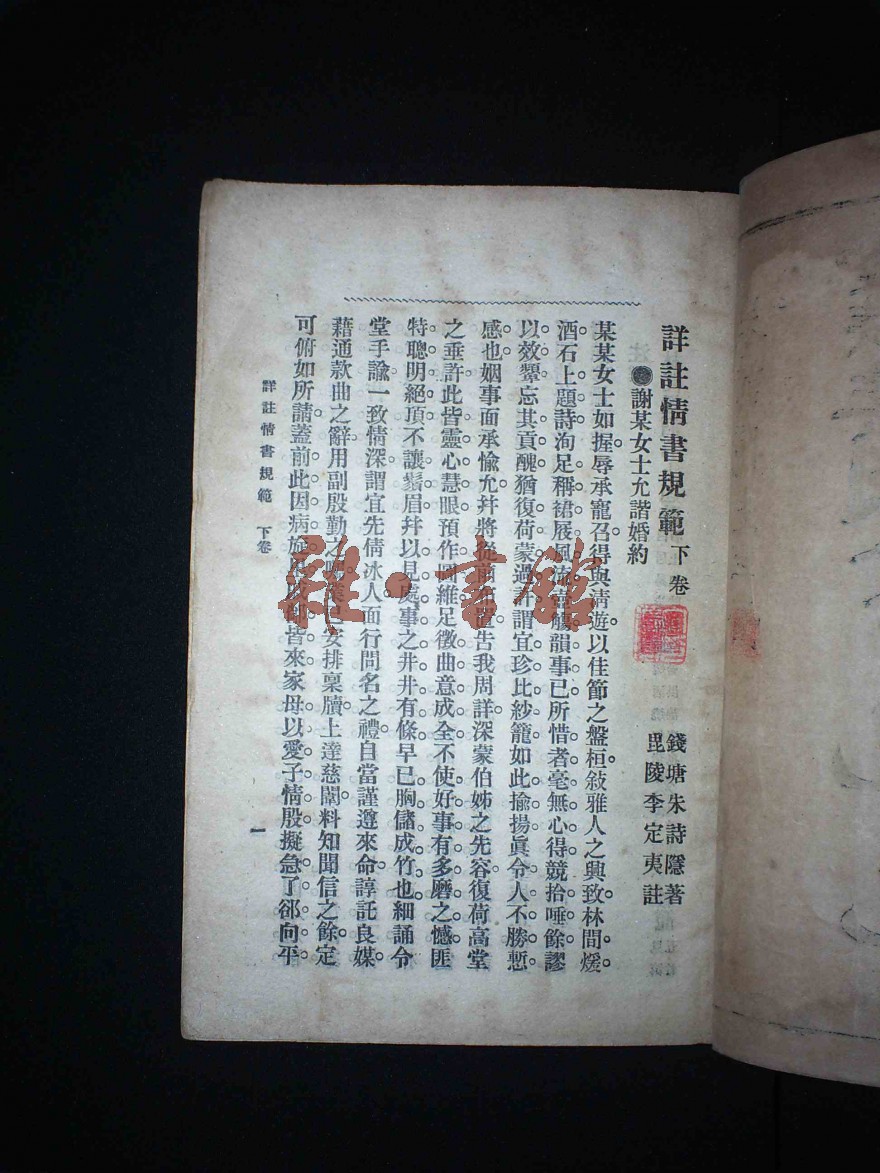 詳註情書規範 下卷
錢塘朱詩隱著
毘陵李定夷註
謝某女士允諧婚約
某某女士如握辱承寵召得與淸遊以佳節之盤桓敍雅人之興致林間煖
酒石上題詩洵足稱裙屐風流 觴韻事已所惜者毫無心得競拾唾餘謬
以效顰忘其貢醜猶復荷蒙過許謂宜珍比紗籠如此揄揚眞令人不勝慙
感也姻事面承愉允幷將從前 告我周詳深蒙伯姊之先容復荷高堂
之垂許此皆靈心慧眼預作圖維足徵曲意成全不使好事有多磨之憾匪
特聰明絕頂不讓鬚眉幷以見處事之井井有條早已胸儲成竹也細誦令
堂手諭一致情深謂宜先倩冰人面行問名之禮自當謹遵來命諄託良媒
藉通款曲之辭用副殷勤之 安排稟牘上達慈闈料知聞信之餘定
可俯如所請蓋前此因病旋 皆來家母以愛子情殷擬急了郤向平
詳註情書規範 下卷
一
雜·書館